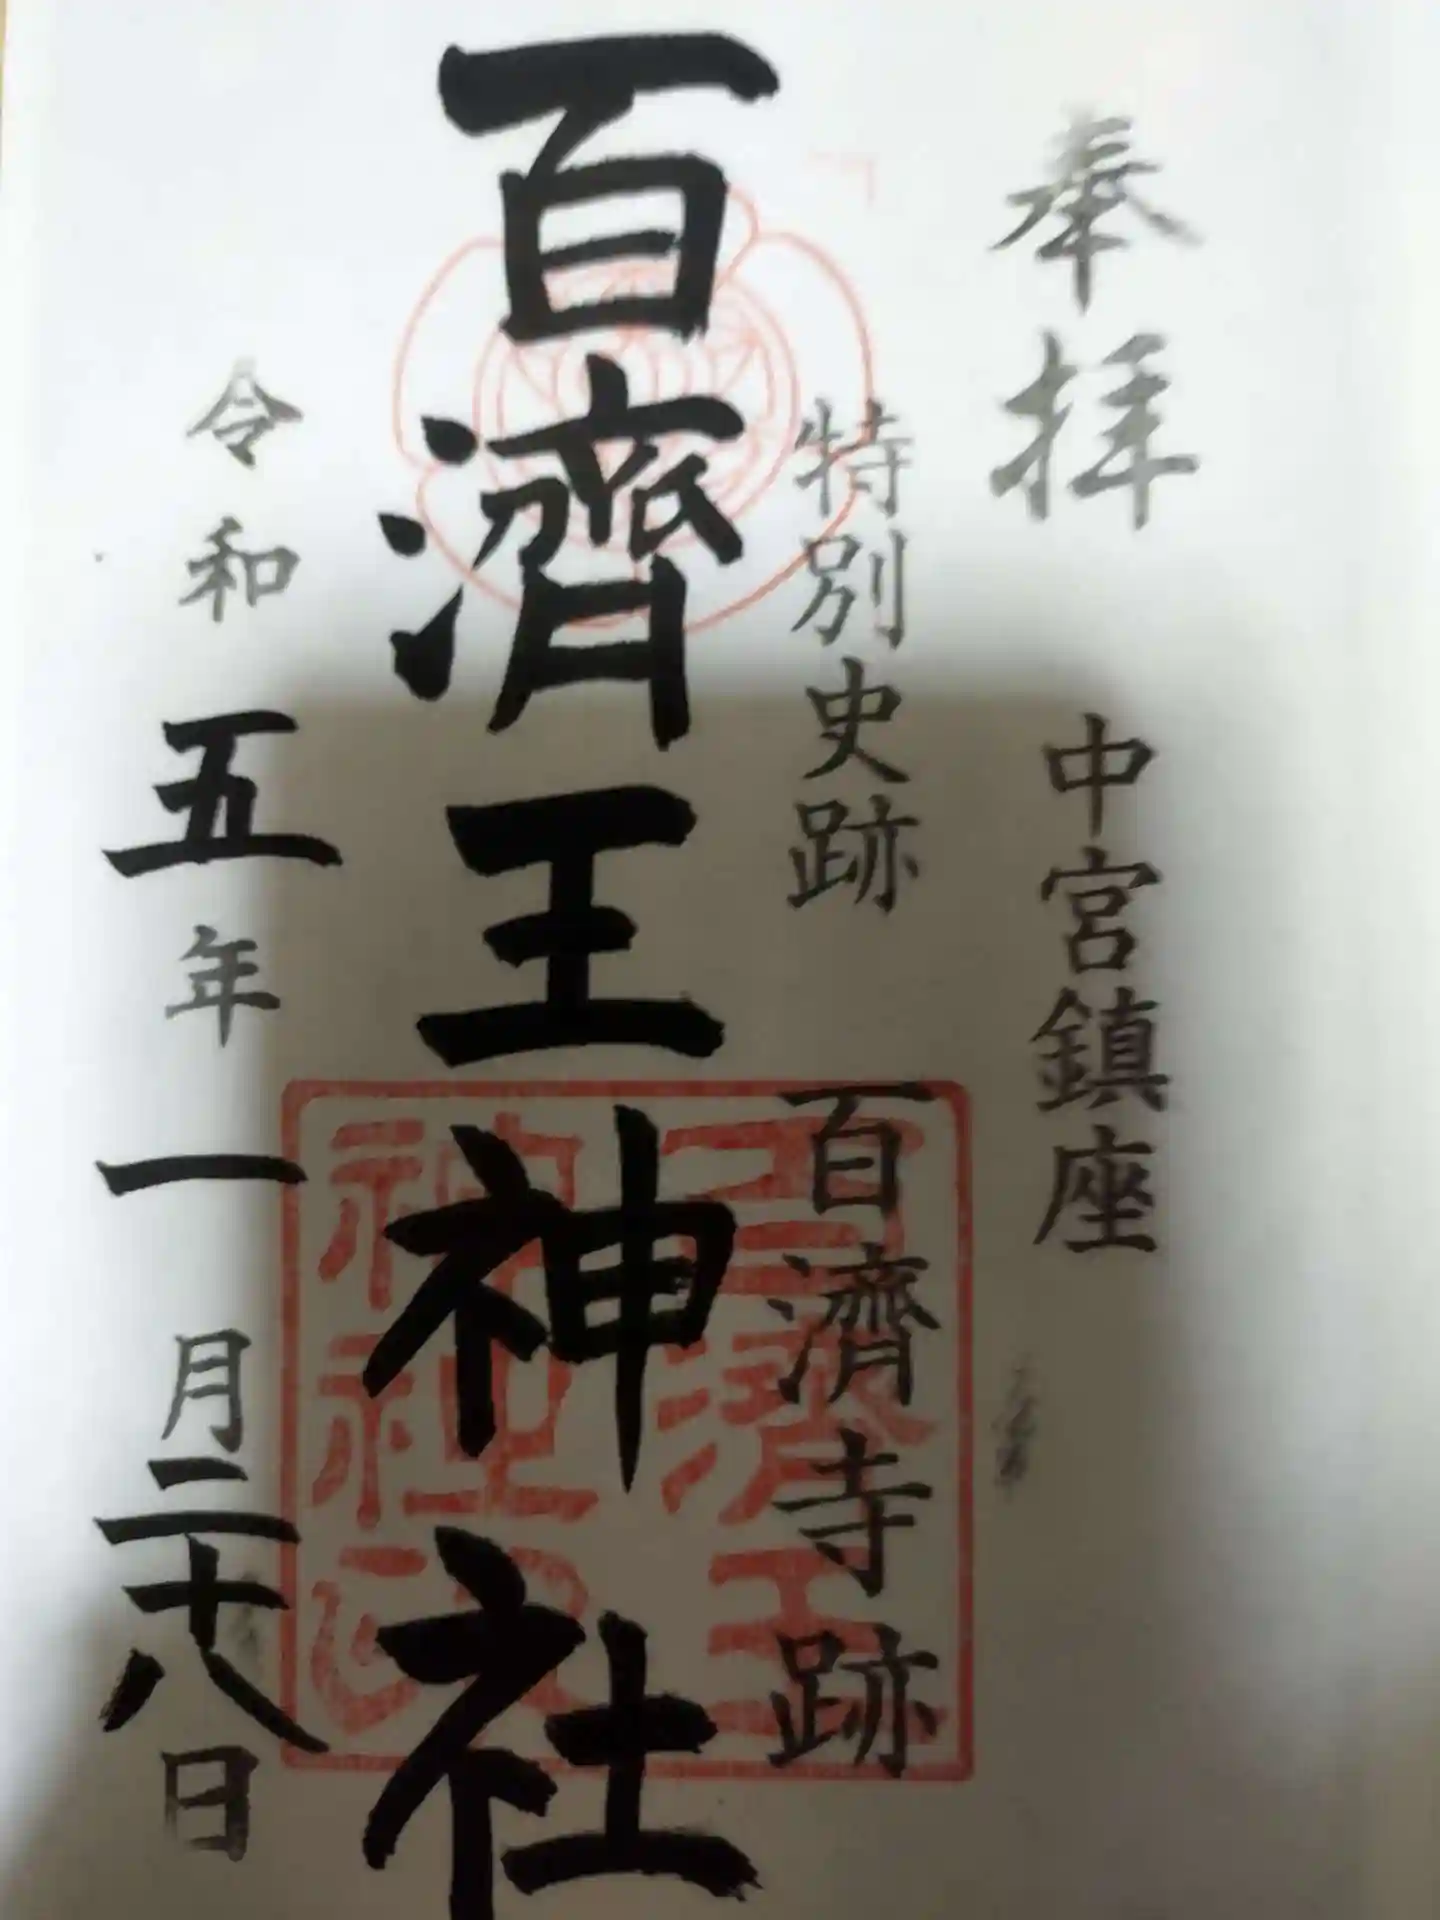 奉拝
中宮鎮座
特別史跡
百濟寺跡
百濟王神社
令和五年一月二十八日
百濟王
神社印